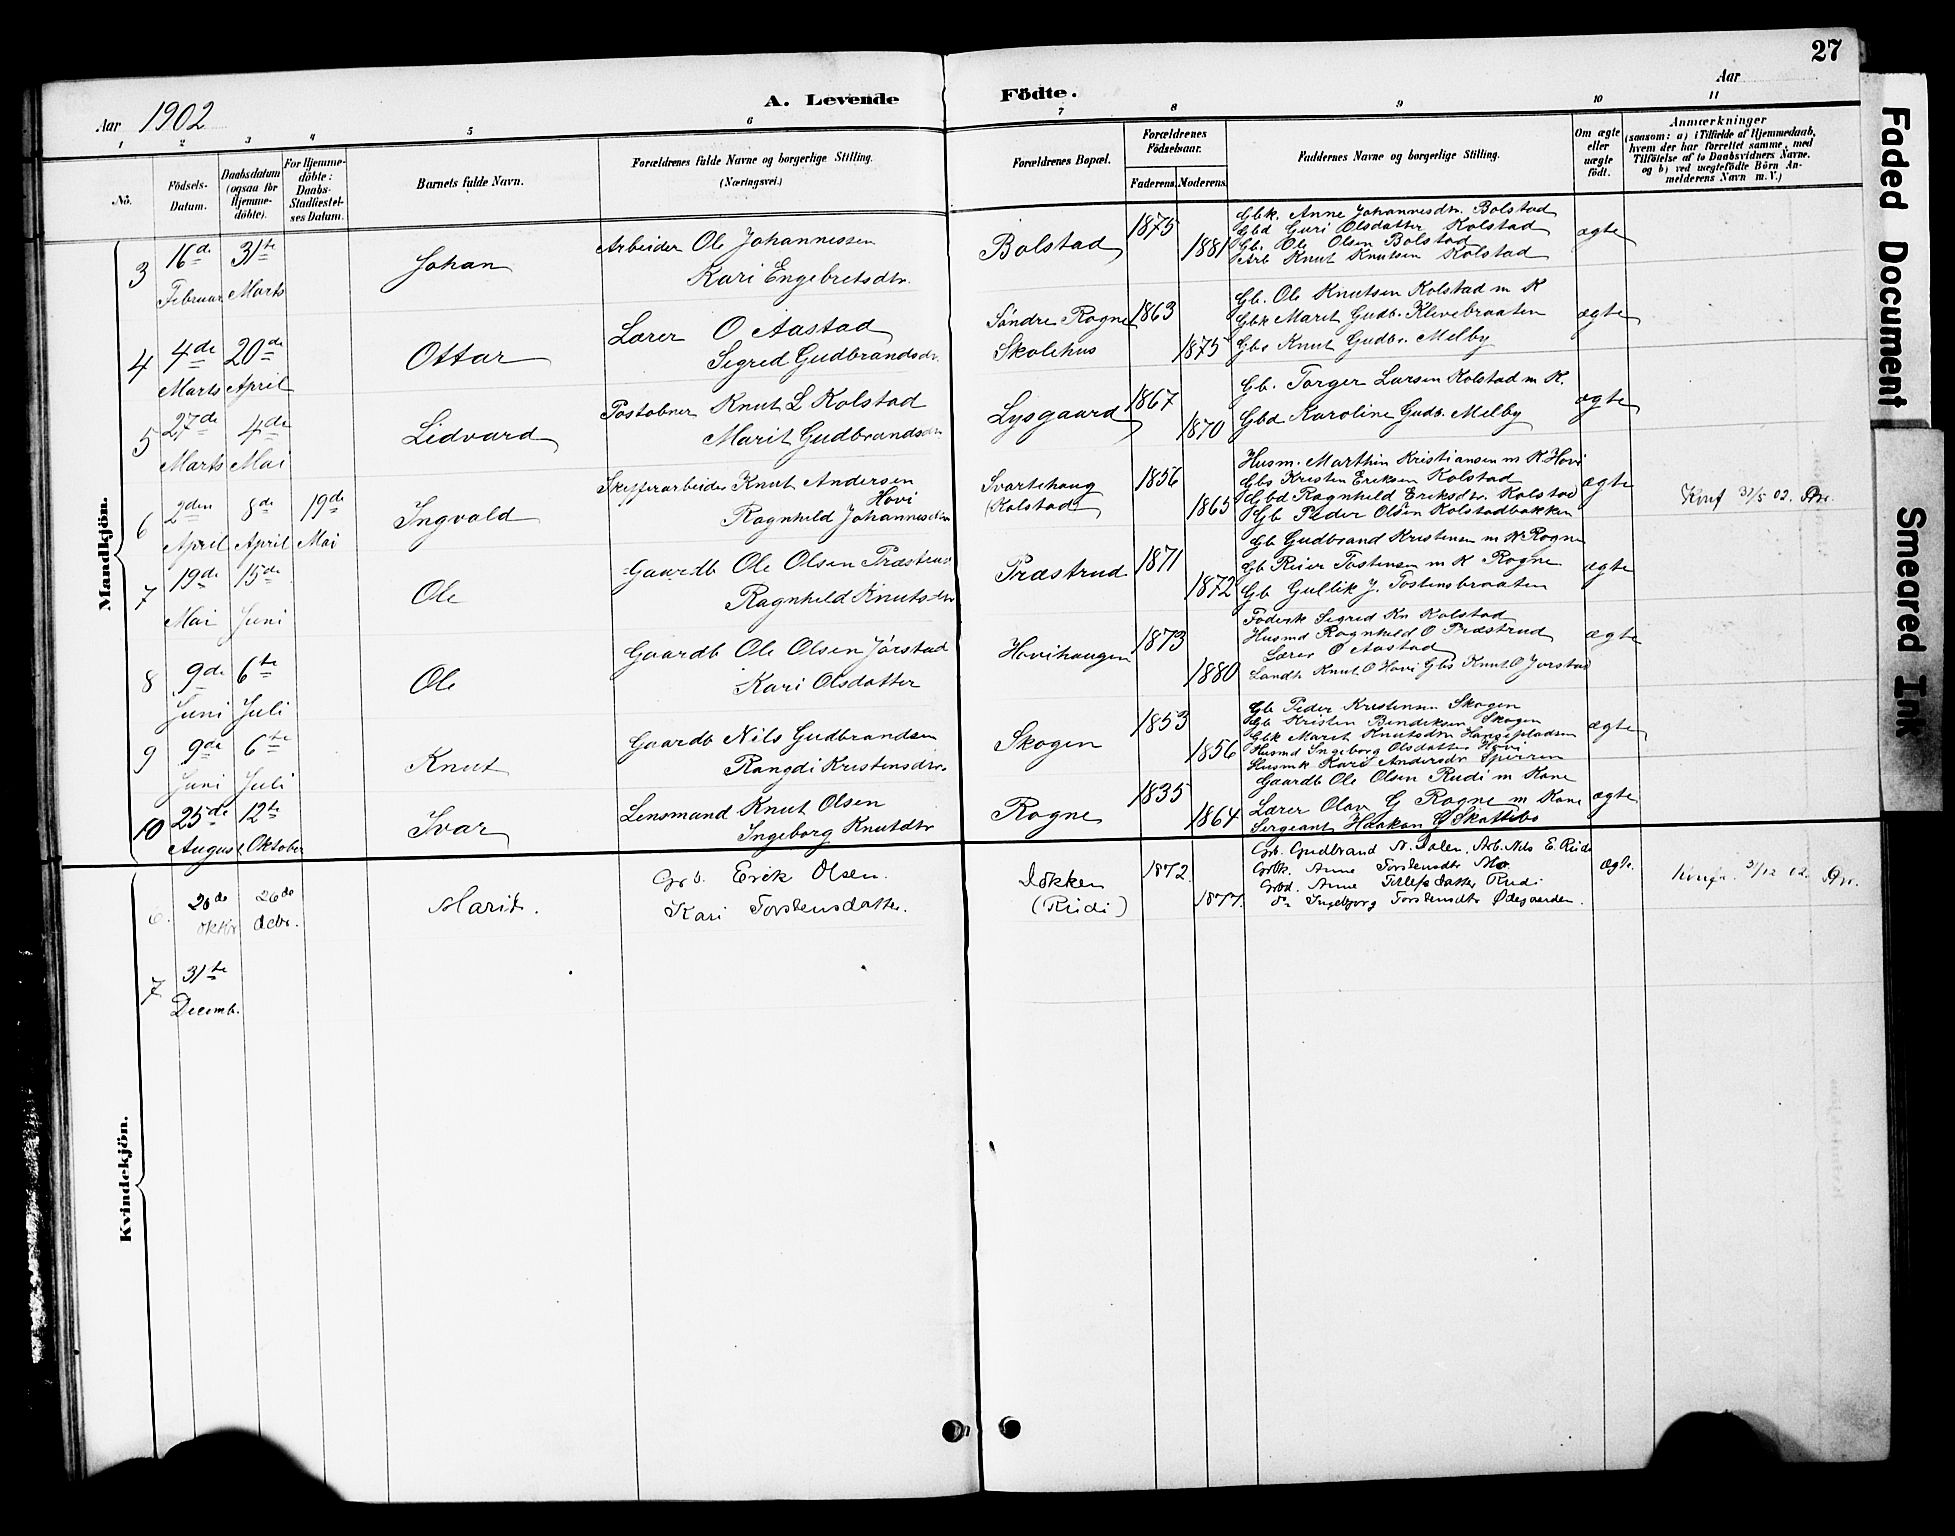 27
Aar 1902
A. Levende Födte.
Aar
1 2 3 4 5 6 7 8 9 10 11
No.
Födsels-Datum.
Daabsdatum (ogsaa for Hjemme-döbte).
For Hjemme-döbte: Daabs-Stadfæstel-ses Datum.
Barnets fulde Navn.
Forældrenes fulde Navne og borgerlige Stilling.
(Næringsvei.)
Forældrenes Bopæl.
Forældrenes Födselsaar.
Faderens. Moderens.
Faddernes Navne og borgerlige Stilling.
Om ægte eller uægte födt.
Anmærkninger
(saasom: a) i Tilfælde af Hjemmedaab, hvem der har forrettet samme, med Tilföielse af to Daabsvidners Navne. og b) ved uægtefödte Börn An-melderens Navn m. V.)
Mandkjön.
3 16de Februar 31te Marts Johan
Arbeider Ole Johannessen
Kari Engebretsdtr.
Bolstad 1875 1881
Gbk. Anne Johannesdtr. Bolstad
Gbd Guri Olsdatter Kolstad
Gb. Ole Olsen Bolstad
Arb Knut Knutsen Kolstad
ægte
4 4de Marts 20de April Ottar
Lærer O Aastad
Sigrid Gudbrandsdr.
Søndre Rogne Skolehus 1863 1875
Gb. Ole Knutsen Kolstad m K
Gbk Marit Gudb. Klevebraaten
Gbs Knut Gudbr. Melby
ægte
5 27de Marts 4de Mai Lidvard
Postobner Knut L Kolstad
Marit Gudbrandsdr
Lysgaard 1867 1870
Gb. Torger Larsen Kolstad m K.
Gbd Karoline Gudb. Melby
ægte
6 2den April 8de April 19de Mai Ingvald
Skifferarbeider Knut Andersen Hovi
Ragnhild Johannesdtr
Svartehaug (Kolstad) 1856 1865
Husm. Marthin Kristiansen m K Hovi
Gbs Kristen Eriksen Kolstad
Gbd Ragnhild Eriksdtr. Kolstad
Gb Peder Olsen Kolstadbakken
ægte
Konf 31/5 02.
7 19de Mai 15de Juni Ole
Gaardb Ole Olsen Præstrud
Ragnhild Knutsdtr
Præstrud 1871 1872
Gb Gudbrand Kristensen m K Rogne
Gb Reier Tostensen m K Rogne
Gb Gullik J. Tostensbraaten
ægte
8 9de Juni 6te Juli Ole
Gaardb Ole Olsen Jørstad
Kari Olsdatter
Hovihaugen 1873 1880
Føderk Sigrid Kn Kolstad
Husmd Ragnhild O Præstrud
Lærer O Aastad
Landh Knut O Hovi Gbs Knut O Jørstad
ægte
9 9de Juni 6te Juli Knut
Gaardb Nils Gudbrandsen
Rangdi Kristensdtr.
Skogen 1853 1856
Gb Peder Kristensen Skogen
Gb Kristen Bendiksen Skogen
Gbk Marit Knutsdtr Haugepladsen
Husmd Ingeborg Olsdatter Hovi
Husmk Kari Andersdtr Spirren
ægte
10 25de August 12te Oktober Ivar
Lensmand Knut Olsen
Ingeborg Knutdtr
Rogne 1835 1864
Gaardb Ole Olsen Rudi m Kone
Lærer Olav G Rogne m Kone
Sergeant Haakon G Skattebo
ægte
Kvindekjön.
6. 26de Oktbr 26de Decbr. Marit.
Grb. Erik Olsen.
Kari Torstensdatter.
Løkken (Rudi) 1872. 1877.
Grb. Gudbrand N. Dalen, Arb. Nils E. Rudi
Grbk. Anne Torstensdtr Mo
Grbd. Anne Tollefsdatter Rudi
do Ingeborg Torstensdtr Ødegaarden.
ægte.
Konf. 31/12 02.
7 31te Decemb.
Faded Document
Smeared Ink